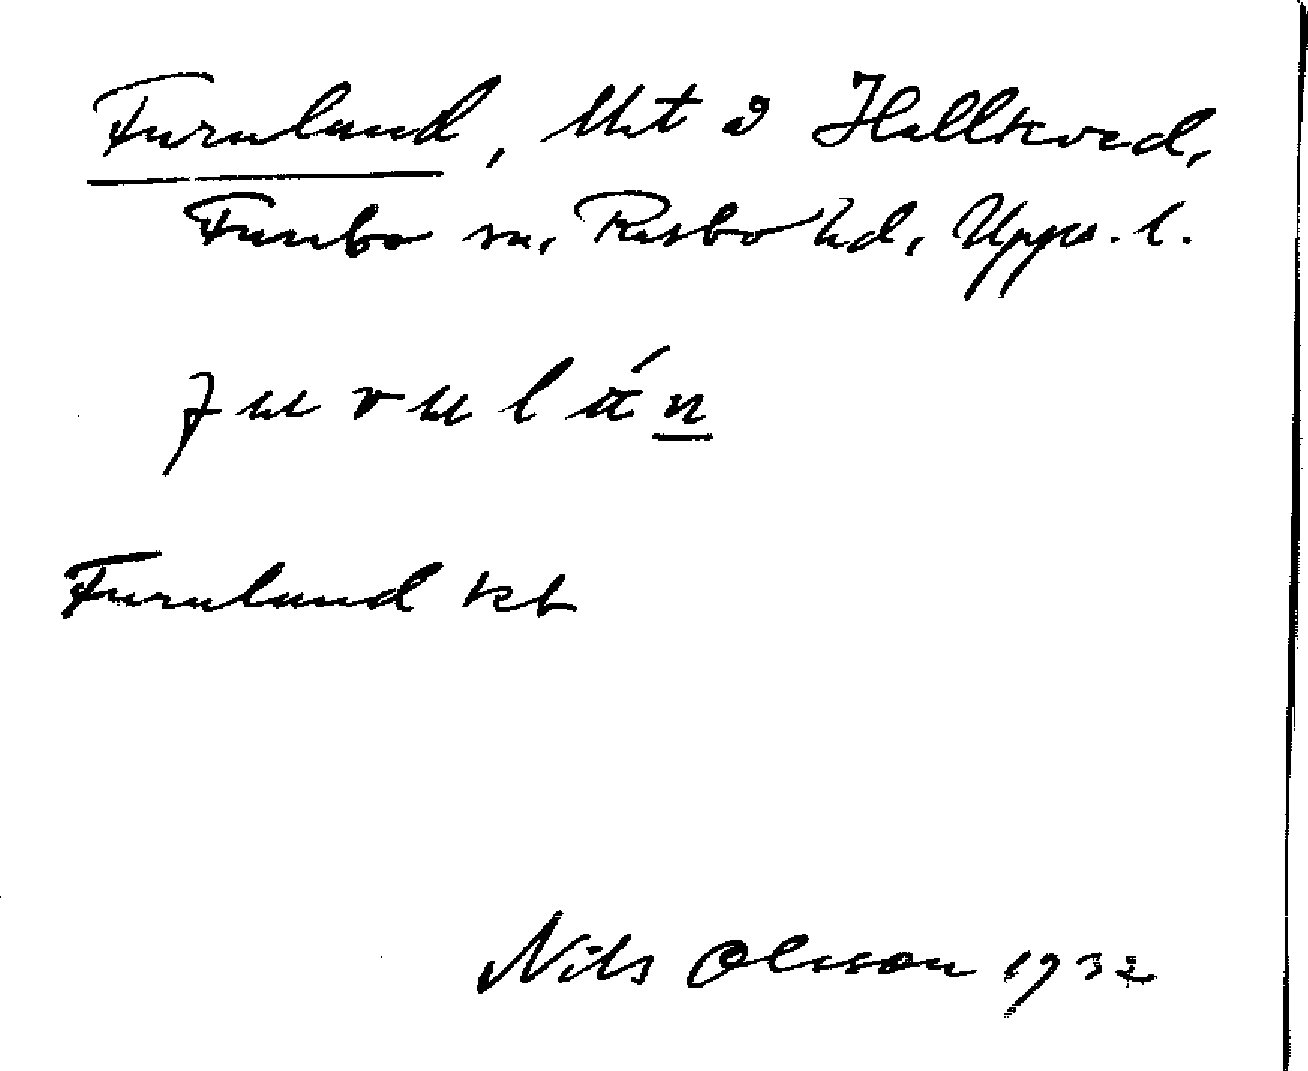 Furuland, lht å Hallkved,
Funbo sn, Rasbo hd, Upps. l.
furulán
Furuland kb
Nils Olsson 1932